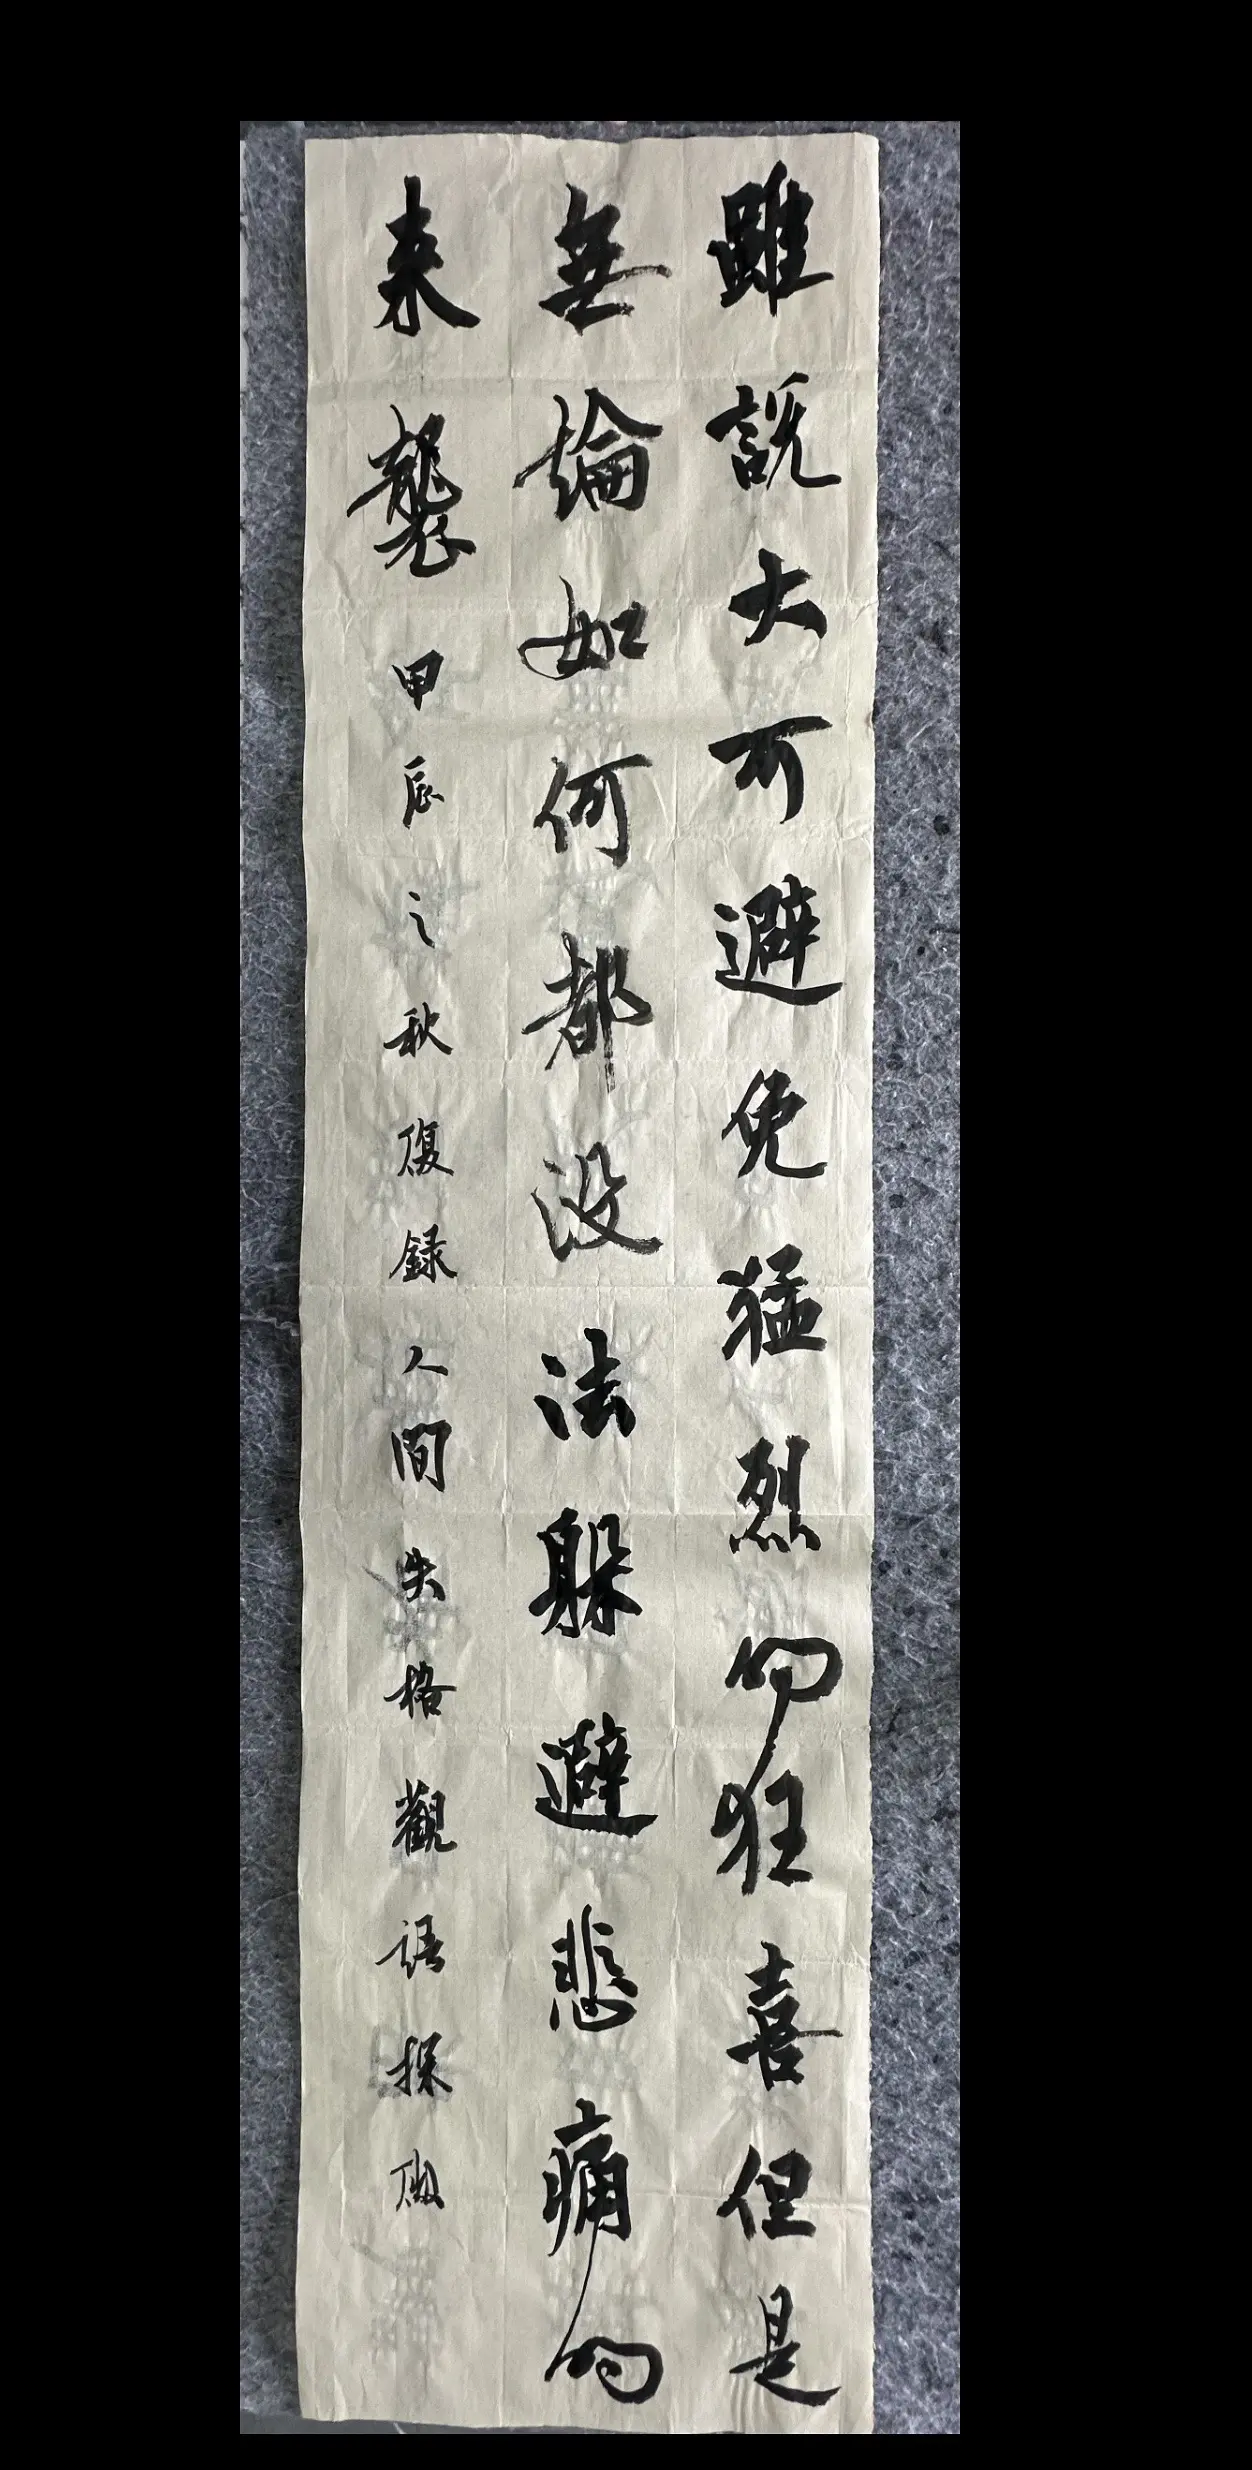 雖說大可避免猛烈的狂喜但是
無論如何都没法躲避悲痛的
来襲 甲辰之秋復録人間失格觀語探微